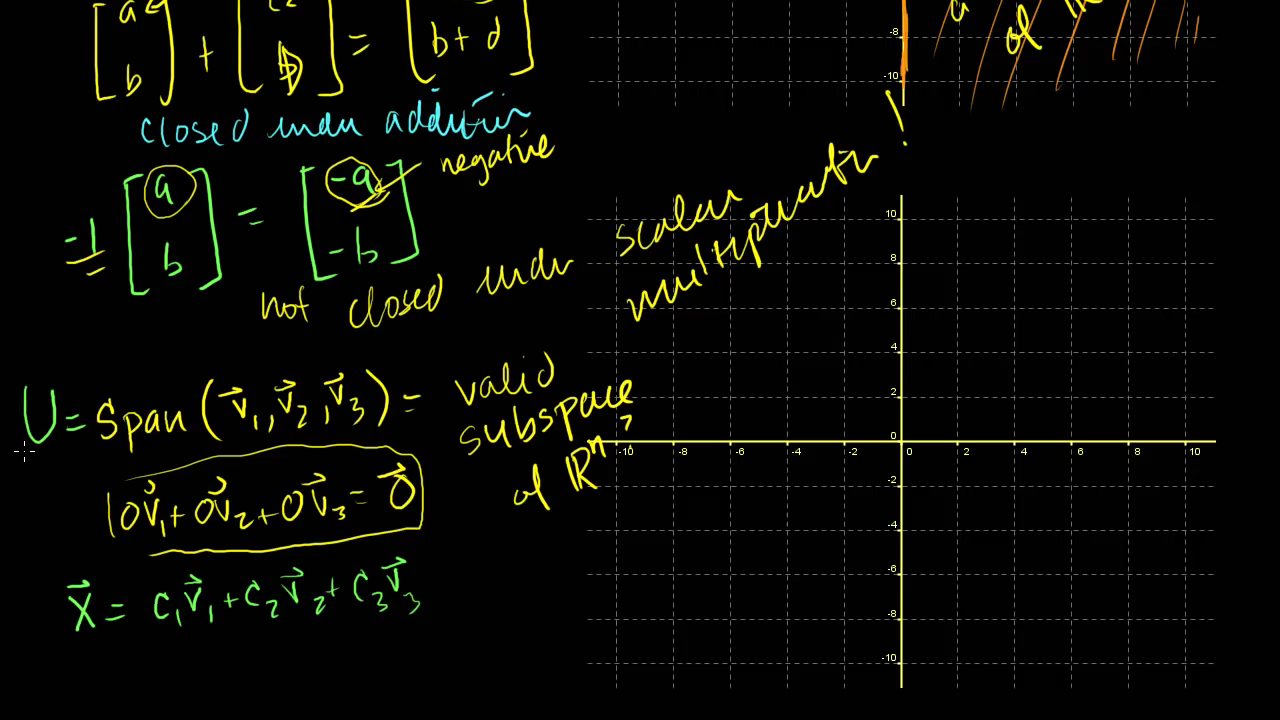 [a b] + [c d] = [b + d]
closed under addition
-1 [a b] = [-a -b] negative
not closed under scalar multiplication!
U = Span (v⃗1, v⃗2, v⃗3) = valid subspace of ℝⁿ?
0v⃗1 + 0v⃗2 + 0v⃗3 = 0⃗
x⃗ = c1v⃗1 + c2v⃗2 + c3v⃗3
of
-8
-10
10
8
6
4
2
0
-10 -8 -6 -4 -2 0 2 4 6 8 10
-2
-4
-6
-8
-10